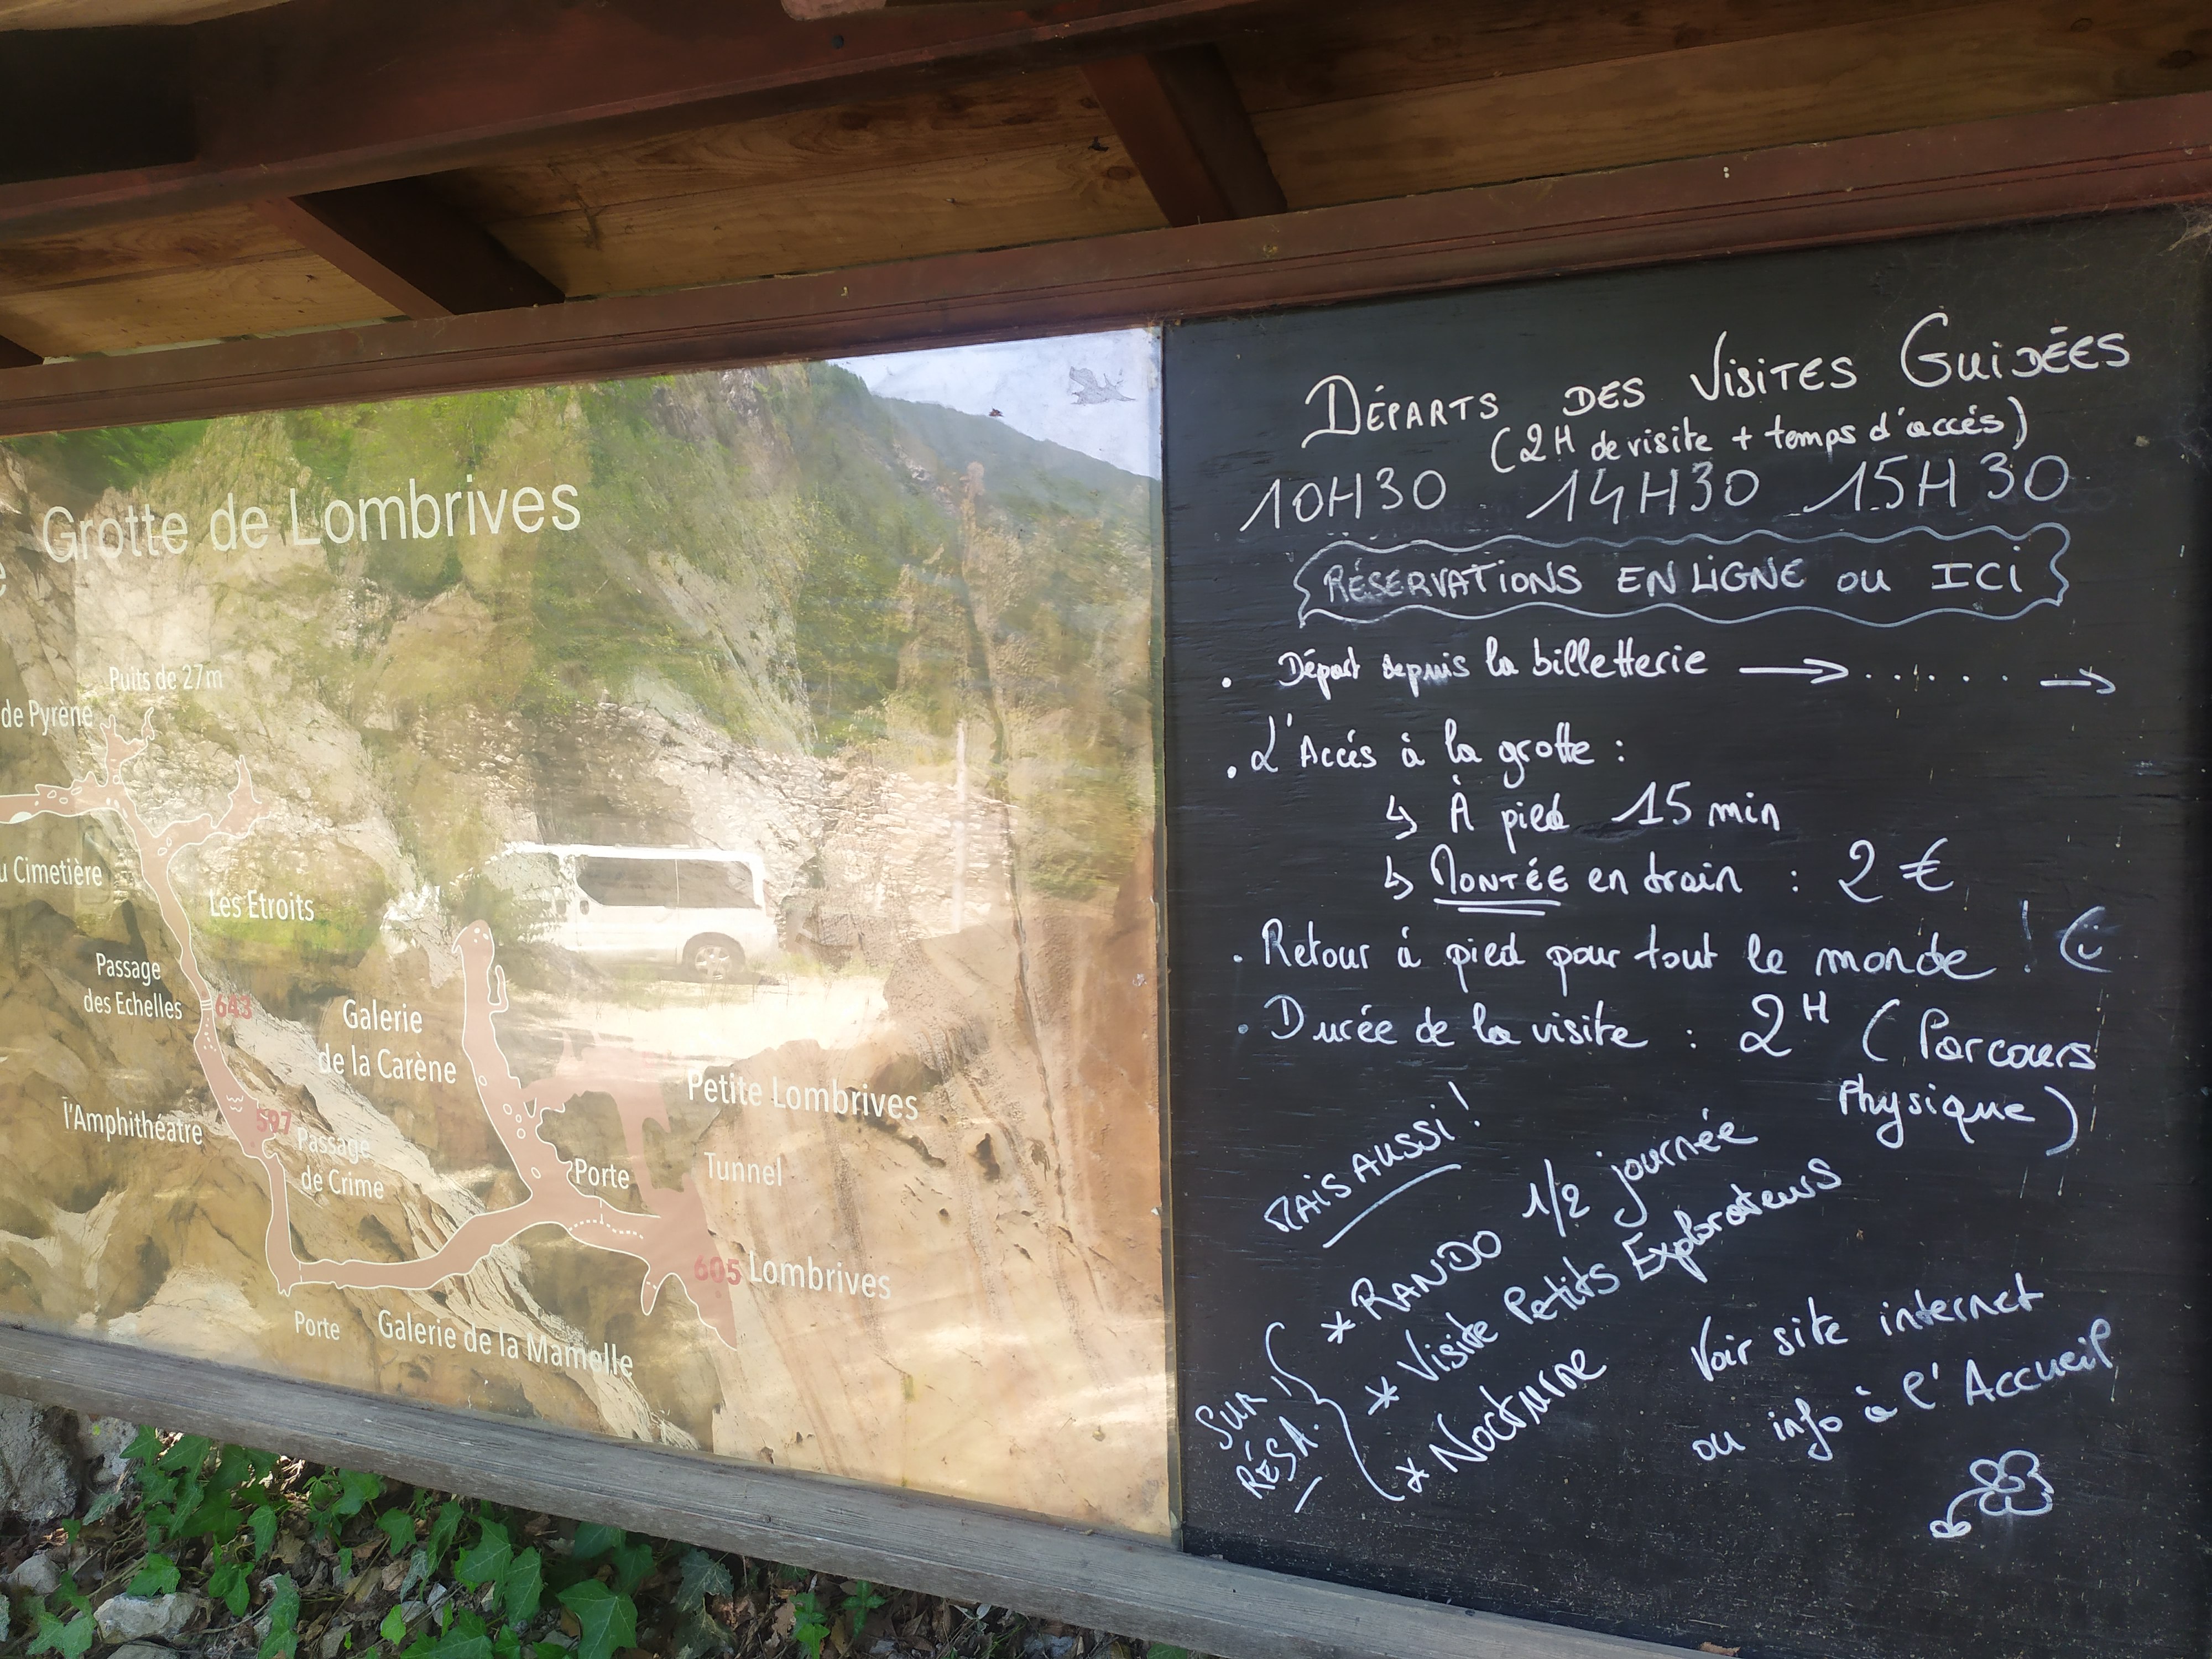 Grotte de Lombrives
Puits de 27m
de Pyrène
Cimetière
Les Etroits
Passage
des Echelles
643
Galerie
de la Carène
l'Amphithéatre
597
Passage
de Crime
Petite Lombrives
Porte
Tunnel
605 Lombrives
Porte
Galerie de la Mamelle
DÉPARTS DES VISITES GUIDÉES
(2H de visite + temps d'accés)
10H30 14H30 15H30
RÉSERVATIONS EN LIGNE OU ICI
. Départ depuis la billetterie → . . . . . . →
. L'Accés à la grotte :
↳ À pied 15 min
↳ MONTÉE en train : 2 €
. Retour à pied pour tout le monde ! ☺
. Durée de la visite : 2H (Parcours
Physique)
MAIS AUSSI !
* RANDO 1/2 journée
* Visite Petits Explorateurs
* Nocturne
SUR
RÉSA.
Voir site internet
ou info à l'Accueil